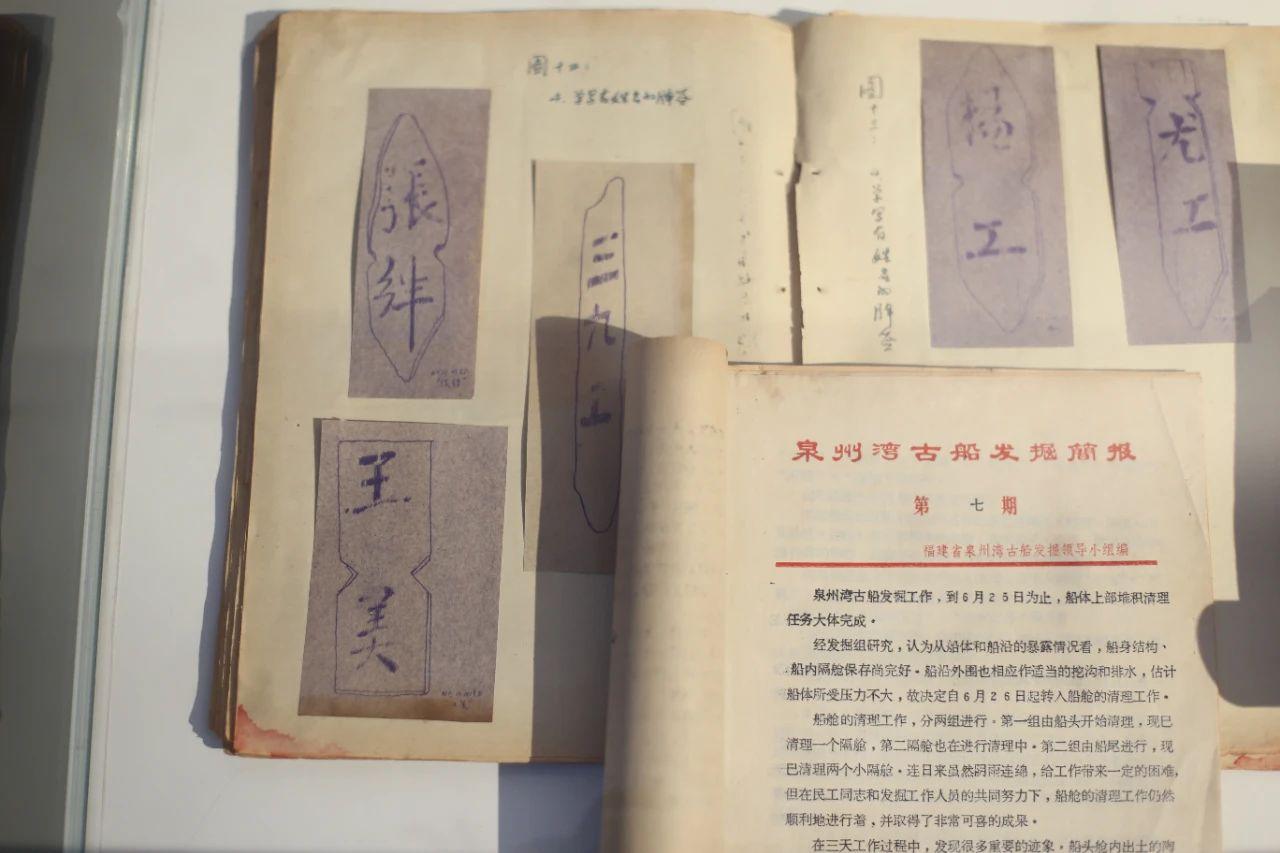 图十二:
4. 墨写有姓名的牌签
張
絆
三九工
王
美
图十三:
4.墨写有姓名的牌签
楊
工
尤
工
泉州湾古船发掘简报
第 七 期
福建省泉州湾古船发掘领导小组编
泉州湾古船发掘工作，到6月25日为止，船体上部堆积清理
任务大体完成。
经发掘组研究，认为从船体和船沿的暴露情况看，船身结构、
船内隔舱保存尚完好。船沿外围也相应作适当的挖沟和排水，估计
船体所受压力不大，故决定自6月26日起转入船舱的清理工作。
船舱的清理工作，分两组进行。第一组由船头开始清理，现已
清理一个隔舱，第二隔舱也在进行清理中。第二组由船尾进行，现
已清理两个小隔舱。连日来虽然阴雨连绵，给工作带来一定的困难，
但在民工同志和发掘工作人员的共同努力下，船舱的清理工作仍然
顺利地进行着，并取得了非常可喜的成果。
在三天工作过程中，发现很多重要的迹象。船头舱内出土的陶